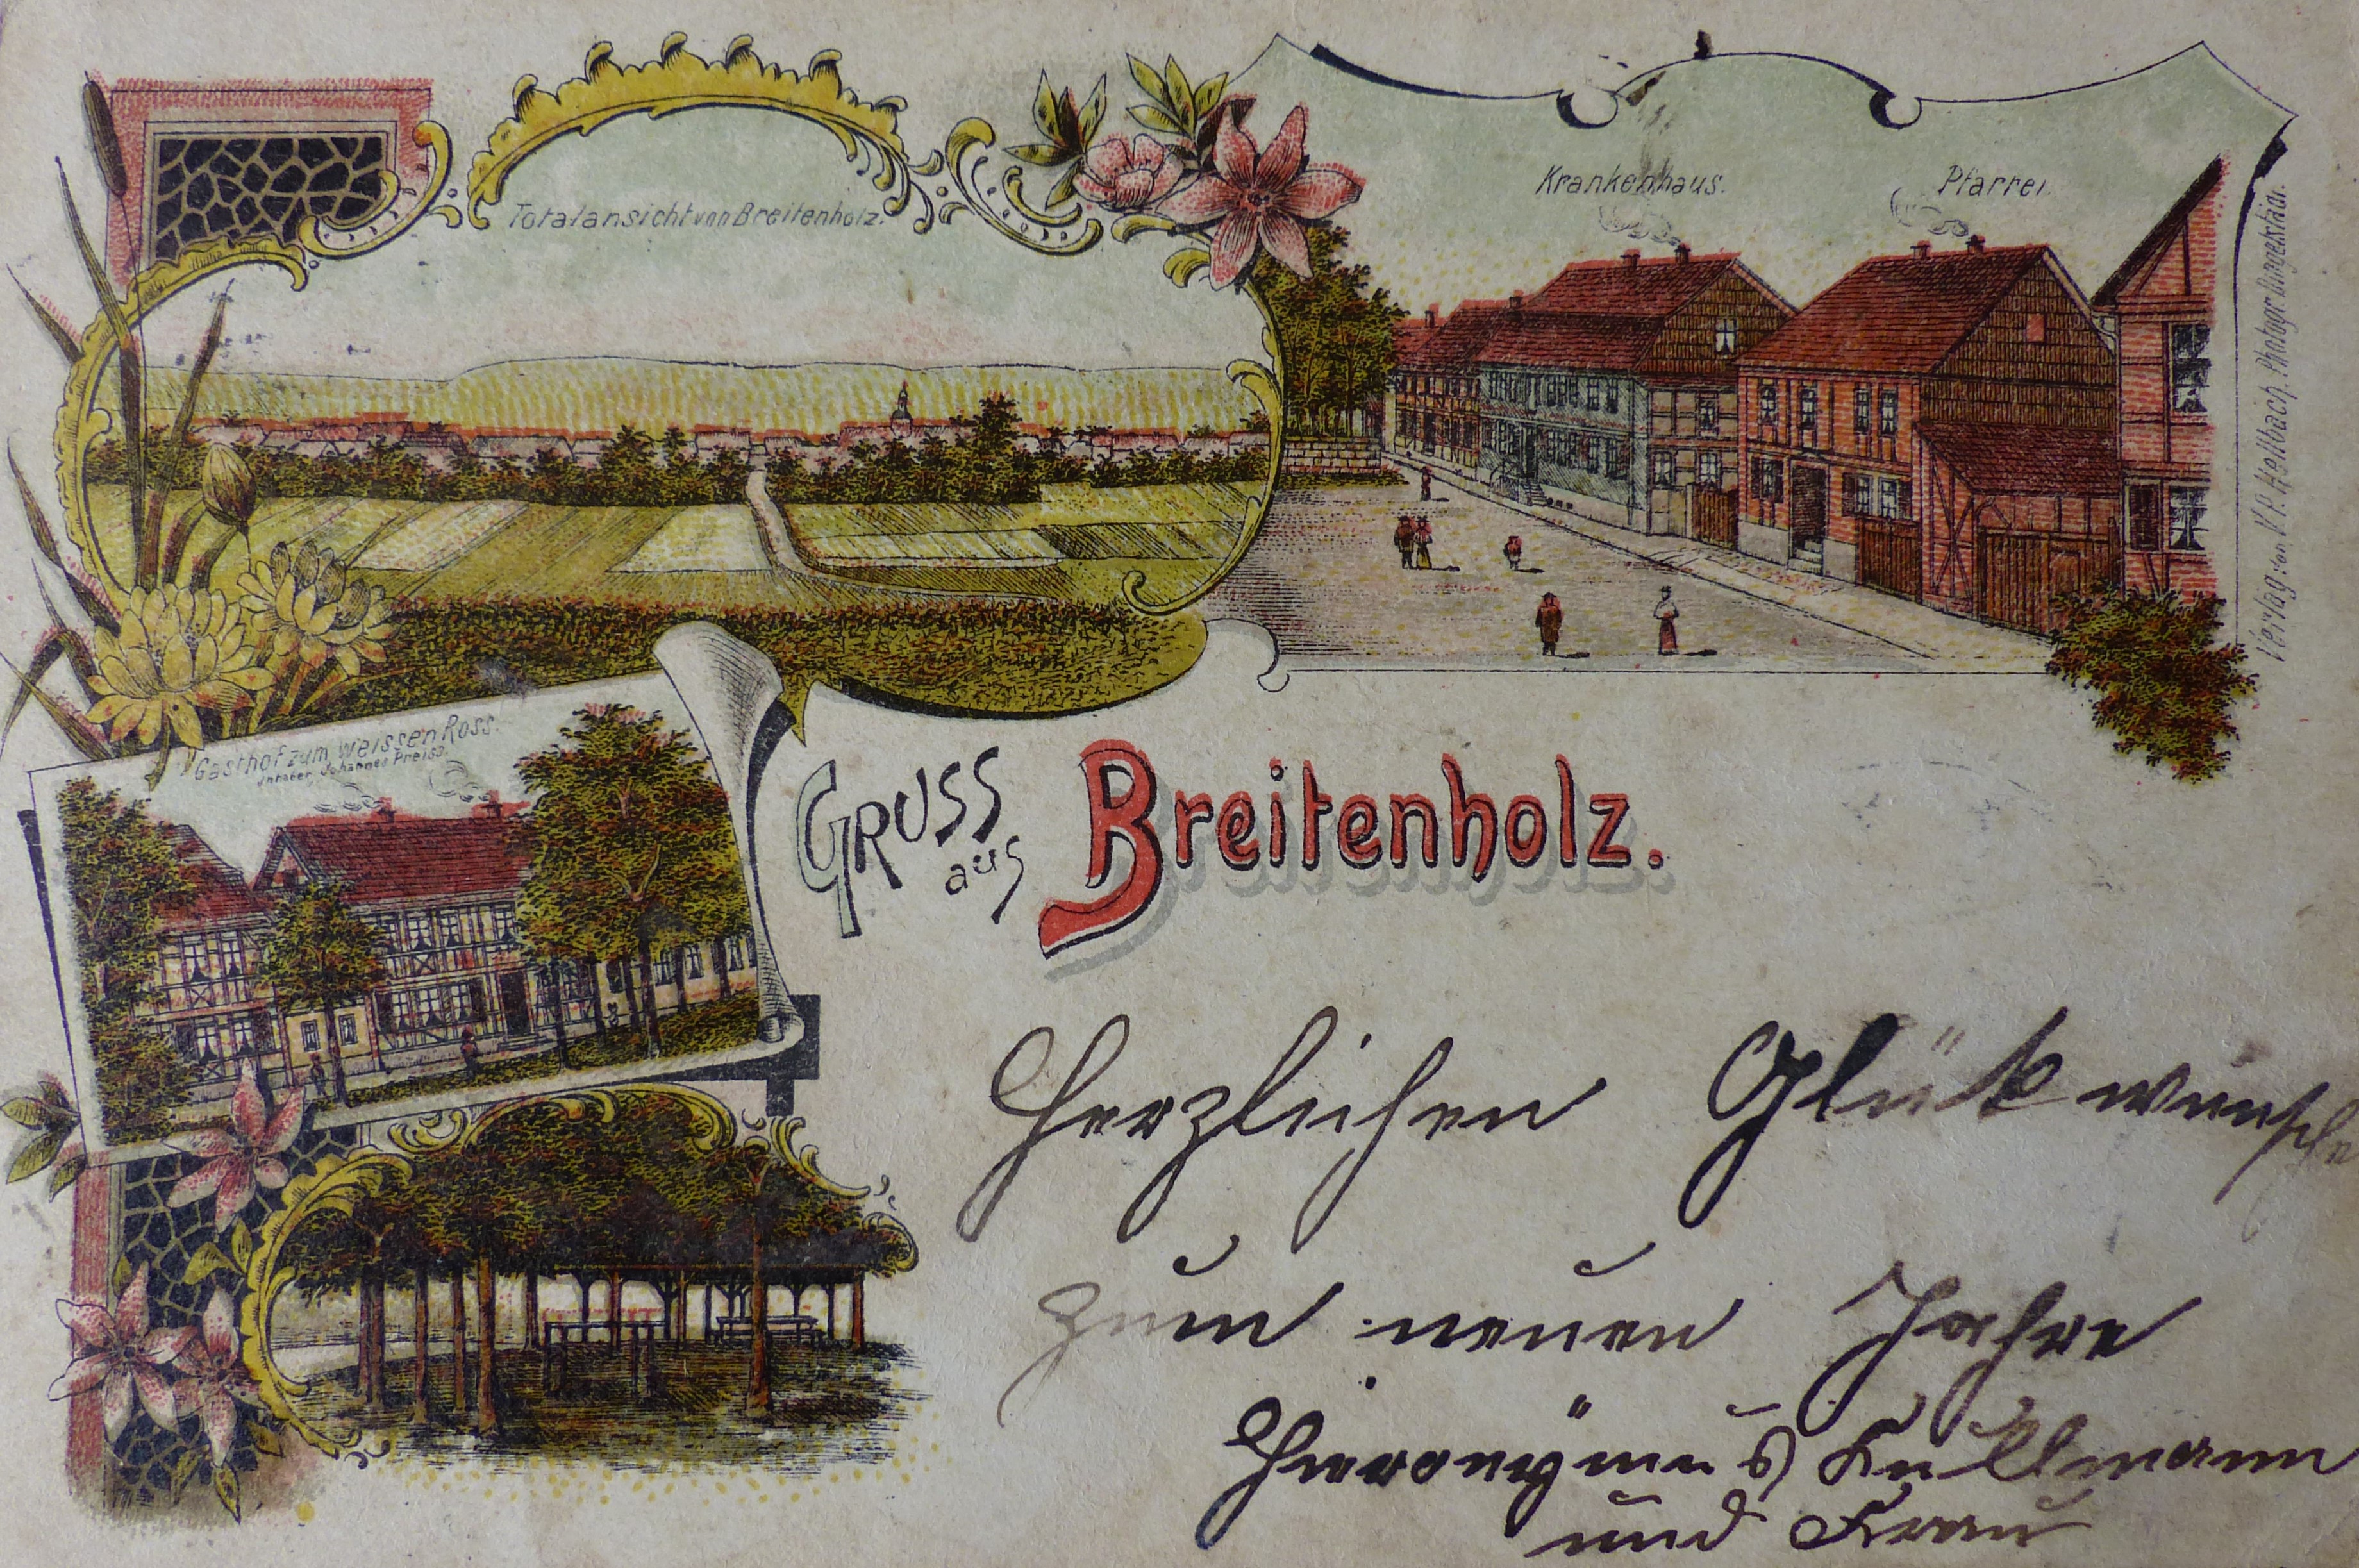 Totalansicht von Breitenholz.
Krankenhaus.
Pfarrei.
Verlag von V. P. Hellbach, Photogr. Dingelstädt.
Gasthof zum weissen Ross.
Inhaber, Johannes Preiss.
GRUSS
aus
Breitenholz.
Herzlichen Glükwunsche
zum neuen Jahre
Hieronÿmus Kullmann
und Frau